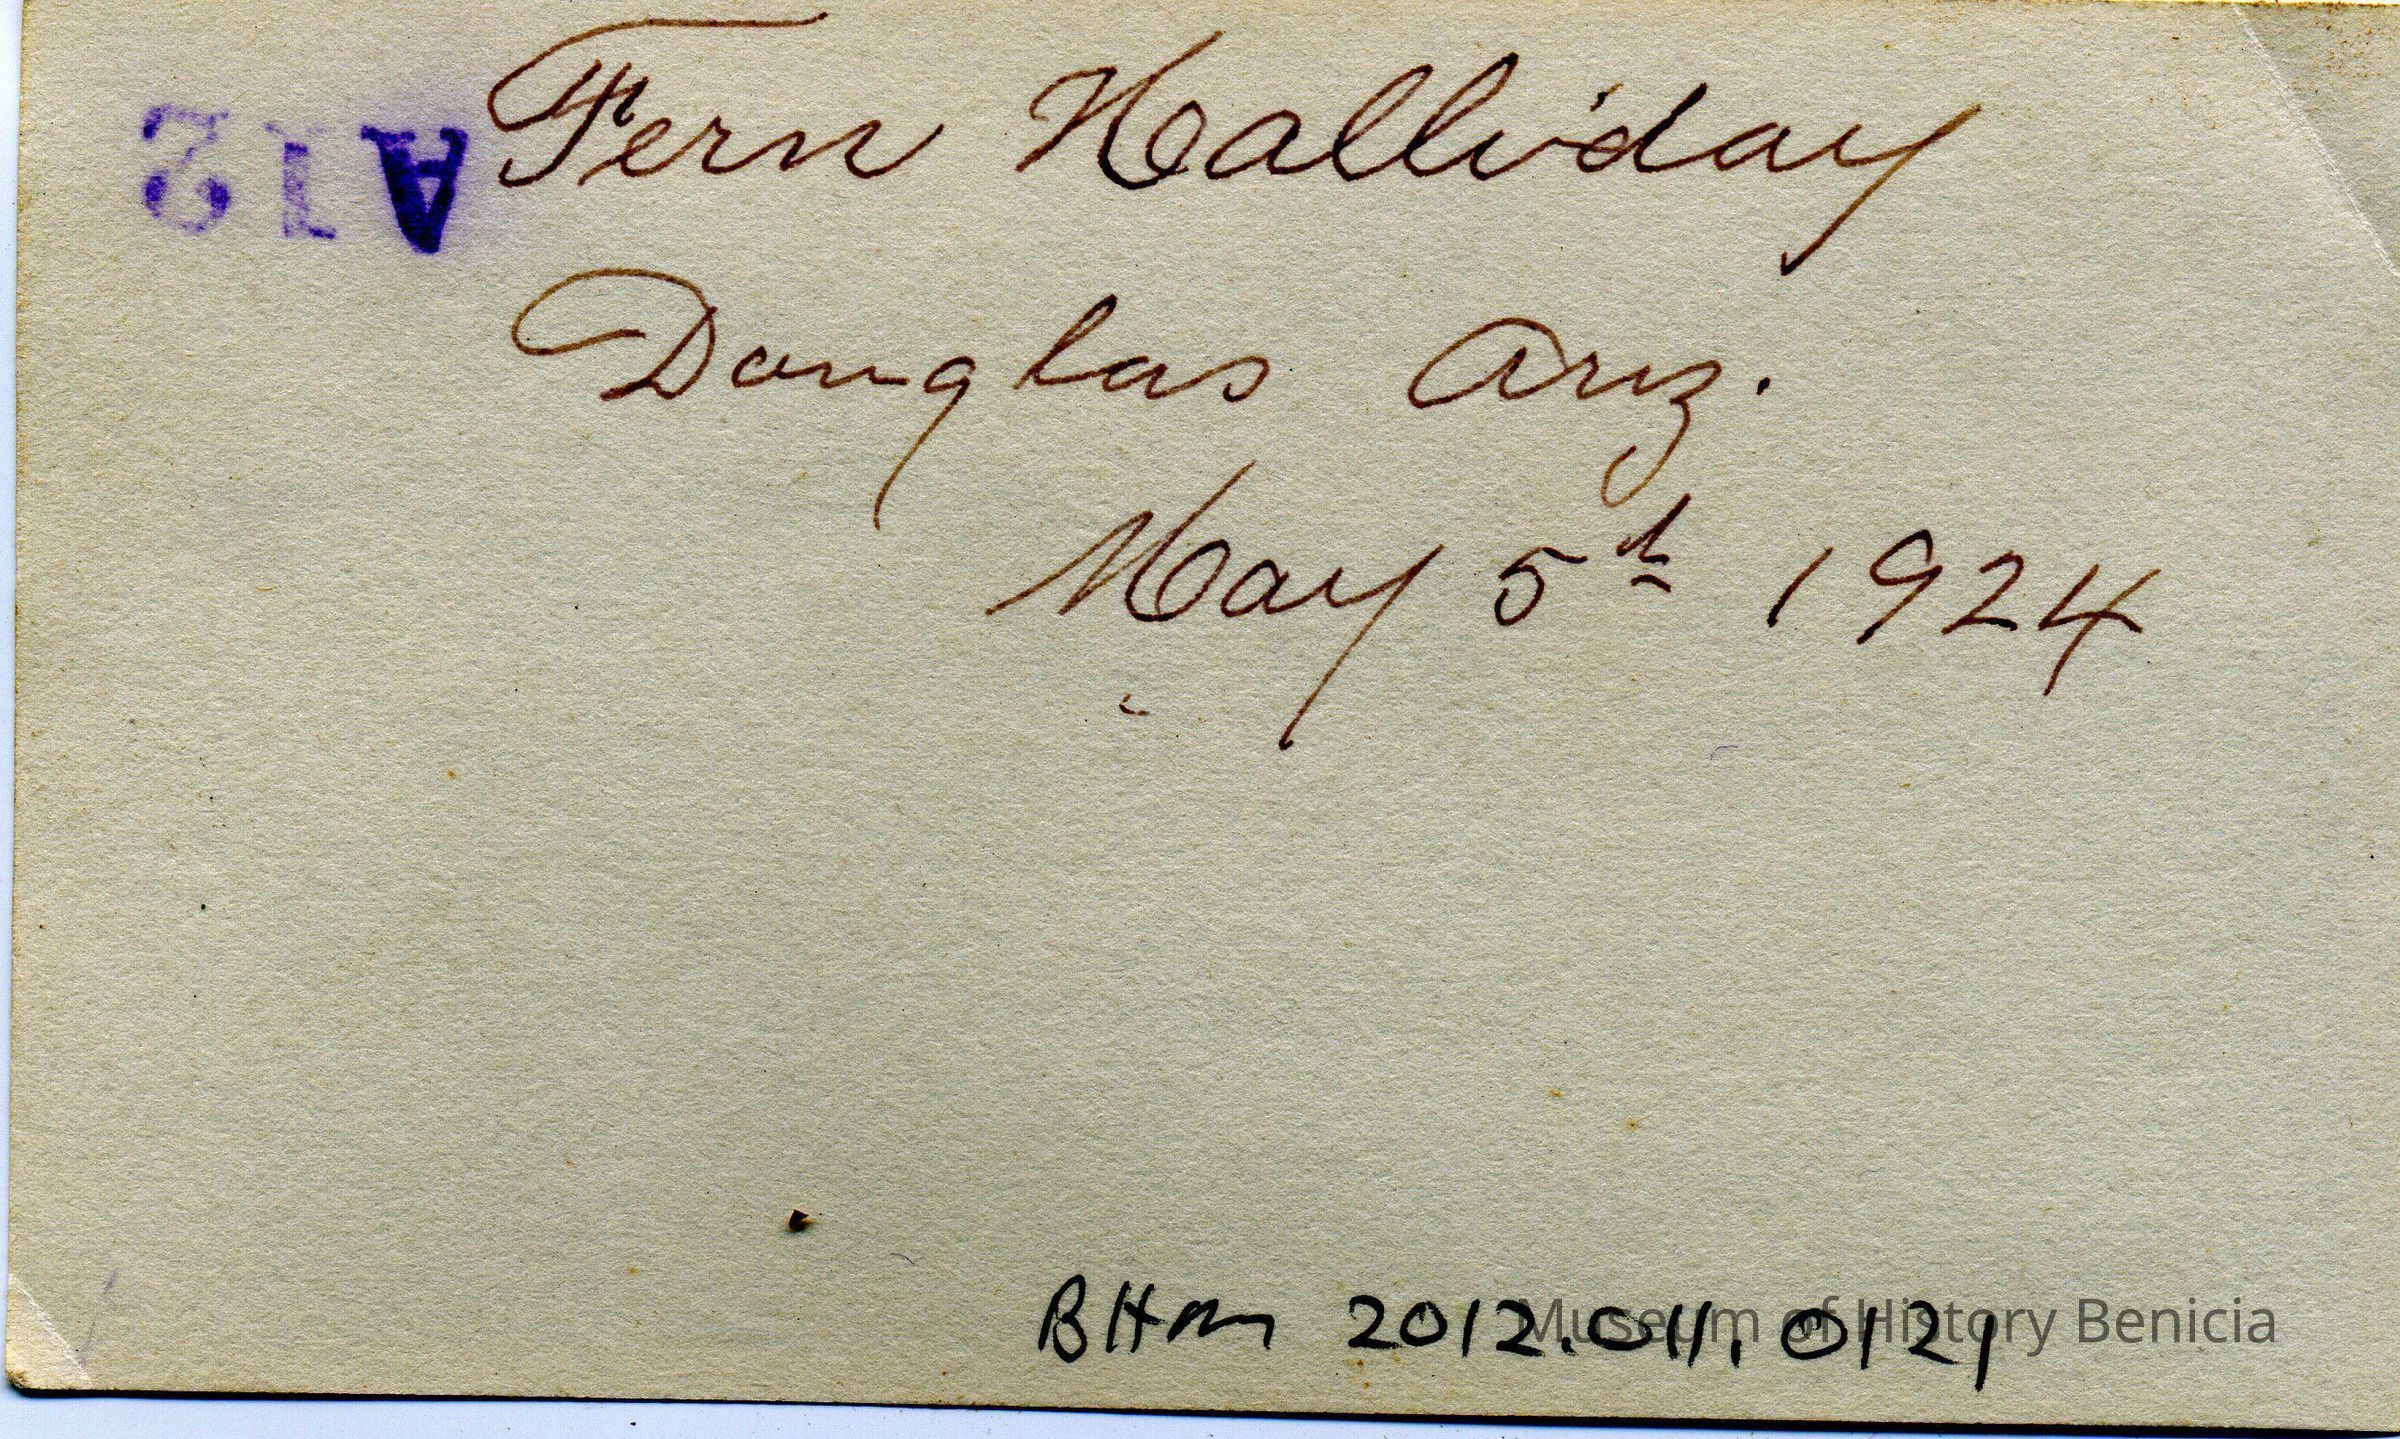 Fern Halliday
A12
Douglas Ariz.
May 5th 1924
BHM 2012.011.0121
Museum of History Benicia